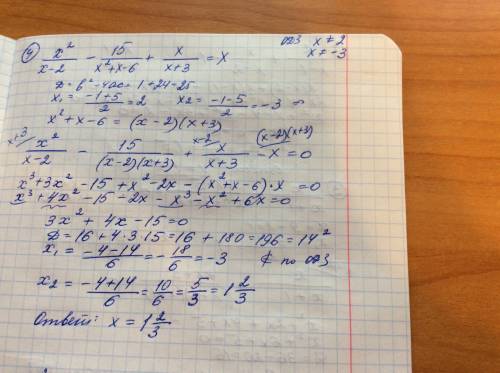 ④ x²/(x-2) - 15/(x²+x-6) + x/(x+3) = x
ОДЗ x ≠ 2
x ≠ -3
D = b²-4ac = 1+24=25
x₁ = (-1+5)/2 = 2 x₂ = (-1-5)/2 = -3
x²+x-6 = (x-2)(x+3)
x+3/ x²/(x-2) - 15/((x-2)(x+3)) + x-2/ x/(x+3) - (x-2)(x+3)/ x = 0
x³+3x²-15+x²-2x-(x²+x-6)·x = 0
x³+4x²-15-2x-x³-x²+6x=0
3x²+4x-15=0
D=16+4·3·15=16+180=196=14²
x₁ = (-4-14)/6 = -18/6 = -3 ∉ по ОДЗ
x₂ = (-4+14)/6 = 10/6 = 5/3 = 1 2/3
Ответ: x = 1 2/3